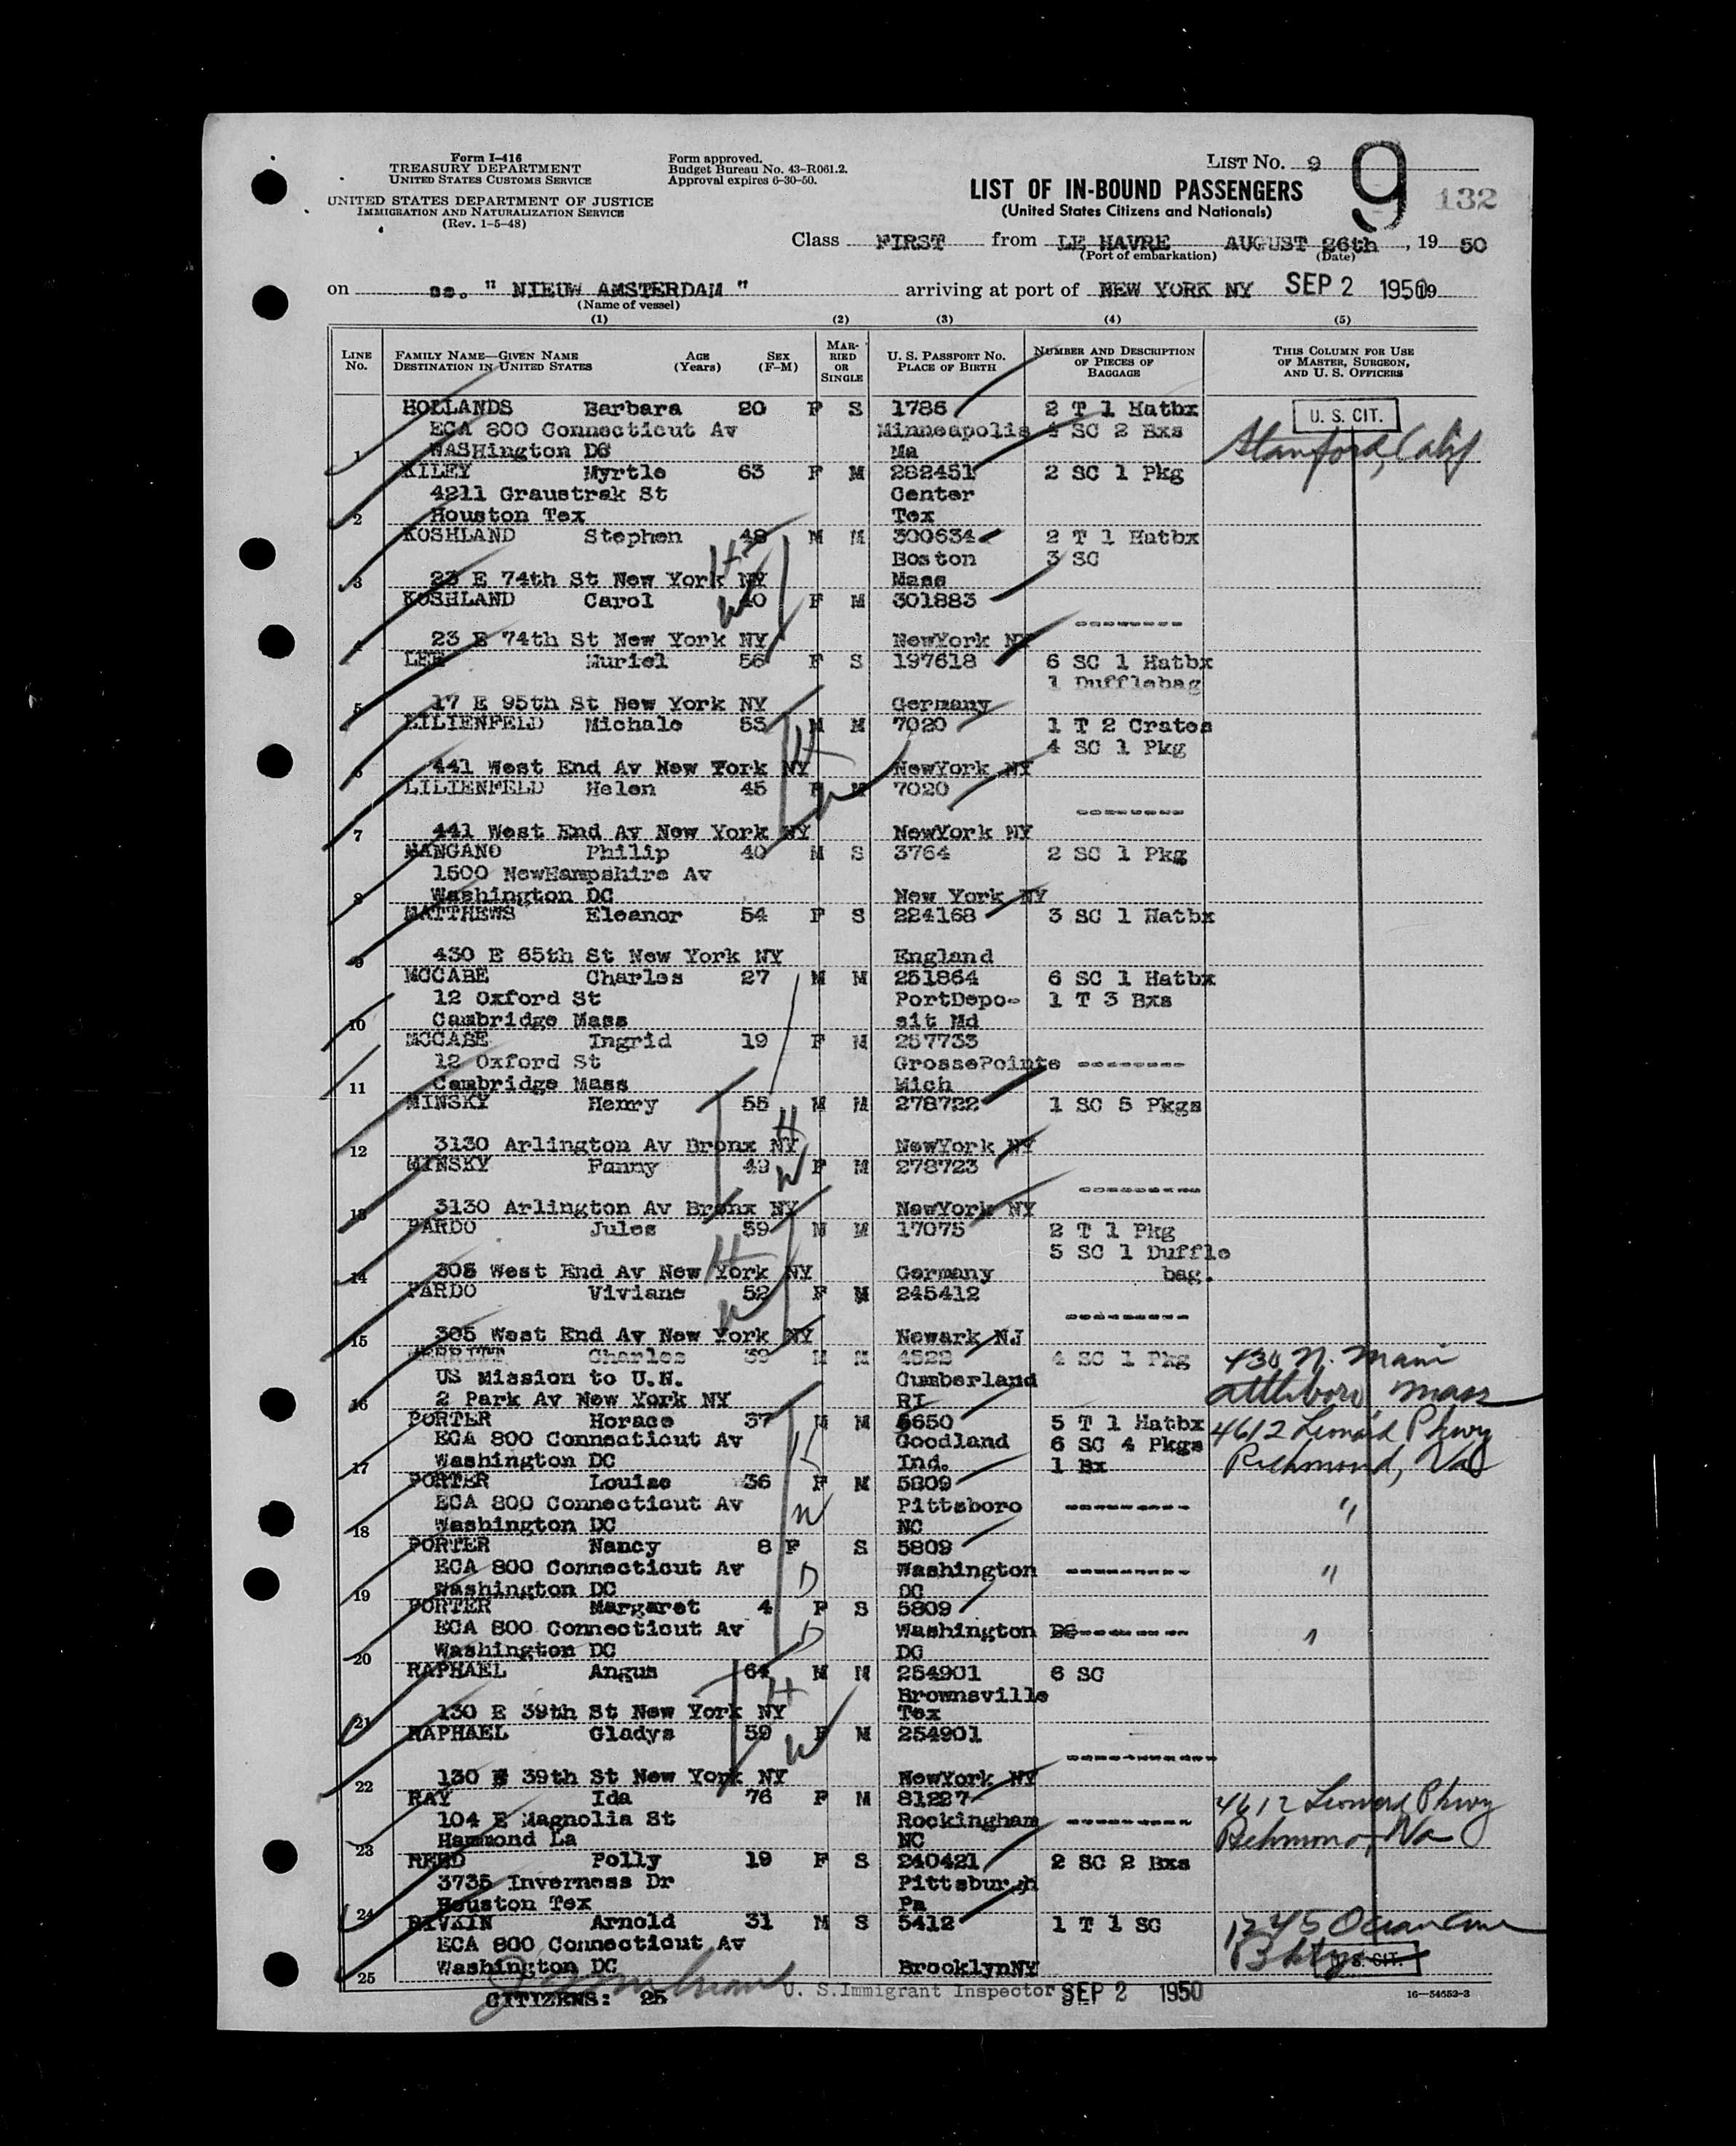 Form I-416
TREASURY DEPARTMENT
UNITED STATES CUSTOMS SERVICE
UNITED STATES DEPARTMENT OF JUSTICE
IMMIGRATION AND NATURALIZATION SERVICE
(Rev. 1-5-48)
Form approved.
Budget Bureau No. 43-R061.2.
Approval expires 6-30-50.
LIST NO. 9
9
132
LIST OF IN-BOUND PASSENGERS
(United States Citizens and Nationals)
Class FIRST from LE HAVRE AUGUST 26th, 19 50
(Port of embarkation) (Date)
on ss. " NIEUW AMSTERDAM " arriving at port of NEW YORK NY SEP 2 1950 19
(Name of vessel)
(1) (2) (3) (4) (5)
LINE NO.
FAMILY NAME—GIVEN NAME
DESTINATION IN UNITED STATES
AGE (Years)
SEX (F-M)
MARRIED OR SINGLE
U. S. PASSPORT NO.
PLACE OF BIRTH
NUMBER AND DESCRIPTION OF PIECES OF BAGGAGE
THIS COLUMN FOR USE OF MASTER, SURGEON, AND U. S. OFFICERS
HOLLANDS Barbara 20 F S 1786 2 T 1 Hatbx U. S. CIT.
ECA 800 Connecticut Av Minneapolis 4 SC 2 Bxs Stanford, Calif
1 WASHington DC Ma
KILEY Myrtle 63 F M 282451 2 SC 1 Pkg
4211 Graustrak St Center
2 Houston Tex Tex
KOSHLAND Stephen 48 M M 300634 2 T 1 Hatbx
Boston 3 SC
3 23 E 74th St New York NY Mass
KOSHLAND Carol 40 F M 301883
--------
4 23 E 74th St New York NY NewYork NY
LEE Muriel 56 F S 197618 6 SC 1 Hatbx
1 Dufflebag
5 17 E 95th St New York NY Germany
LILIENFELD Michale 53 M M 7020 1 T 2 Crates
4 SC 1 Pkg
6 441 West End Av New York NY NewYork NY
LILIENFELD Helen 45 F M 7020
--------
7 441 West End Av New York NY NewYork NY
MANGANO Philip 40 M S 3764 2 SC 1 Pkg
1500 NewHampshire Av
8 Washington DC New York NY
MATTHEWS Eleanor 54 F S 224168 3 SC 1 Hatbx
9 430 E 65th St New York NY England
MCCABE Charles 27 M M 251864 6 SC 1 Hatbx
12 Oxford St PortDepo- 1 T 3 Bxs
10 Cambridge Mass sit Md
MCCABE Ingrid 19 F M 257733
12 Oxford St GrossePointe --------
11 Cambridge Mass Mich
MINSKY Henry 55 M M 278722 1 SC 5 Pkgs
12 3130 Arlington Av Bronx NY NewYork NY
MINSKY Fanny 49 F M 278723
---------
13 3130 Arlington Av Bronx NY NewYork NY
PARDO Jules 59 M M 17075 2 T 1 Pkg
5 SC 1 Duffle
14 305 West End Av New York NY Germany bag.
PARDO Viviane 52 F M 245412
---------
15 305 West End Av New York NY Newark NJ
MERRITT Charles 39 M M 4522 4 SC 1 Pkg 430 N. Main
US Mission to U.N. Cumberland Attleboro, Mass
16 2 Park Av New York NY RI
PORTER Horace 37 M M 5650 5 T 1 Hatbx 4612 Leonard Pkwy
ECA 800 Connecticut Av Goodland 6 SC 4 Pkgs Richmond, Va
17 Washington DC Ind. 1 Bx
PORTER Louise 36 F M 5809
ECA 800 Connecticut Av Pittsboro --------- "
18 Washington DC NC
PORTER Nancy 8 F S 5809
ECA 800 Connecticut Av Washington --------- "
19 Washington DC DC
PORTER Margaret 4 F S 5809
ECA 800 Connecticut Av Washington --------- "
20 Washington DC DC
RAPHAEL Angus 64 M M 254901 6 SC
Brownsville
21 130 E 39th St New York NY Tex
RAPHAEL Gladys 59 F M 254901
---------
22 130 E 39th St New York NY NewYork NY
RAY Ida 76 F M 81227 4612 Leonard Pkwy
104 E Magnolia St Rockingham --------- Richmond, Va
23 Hammond La NC
REED Polly 19 F S 240421 2 SC 2 Bxs
3735 Inverness Dr Pittsburgh
24 Houston Tex Pa
RIVKIN Arnold 31 M S 5412 1 T 1 SC 1245 Ocean Ave
ECA 800 Connecticut Av Bklyn
25 Washington DC BrooklynNY U. S. CIT.
CITIZENS: 25 U. S. Immigrant Inspector SEP 2 1950 16—54652-3